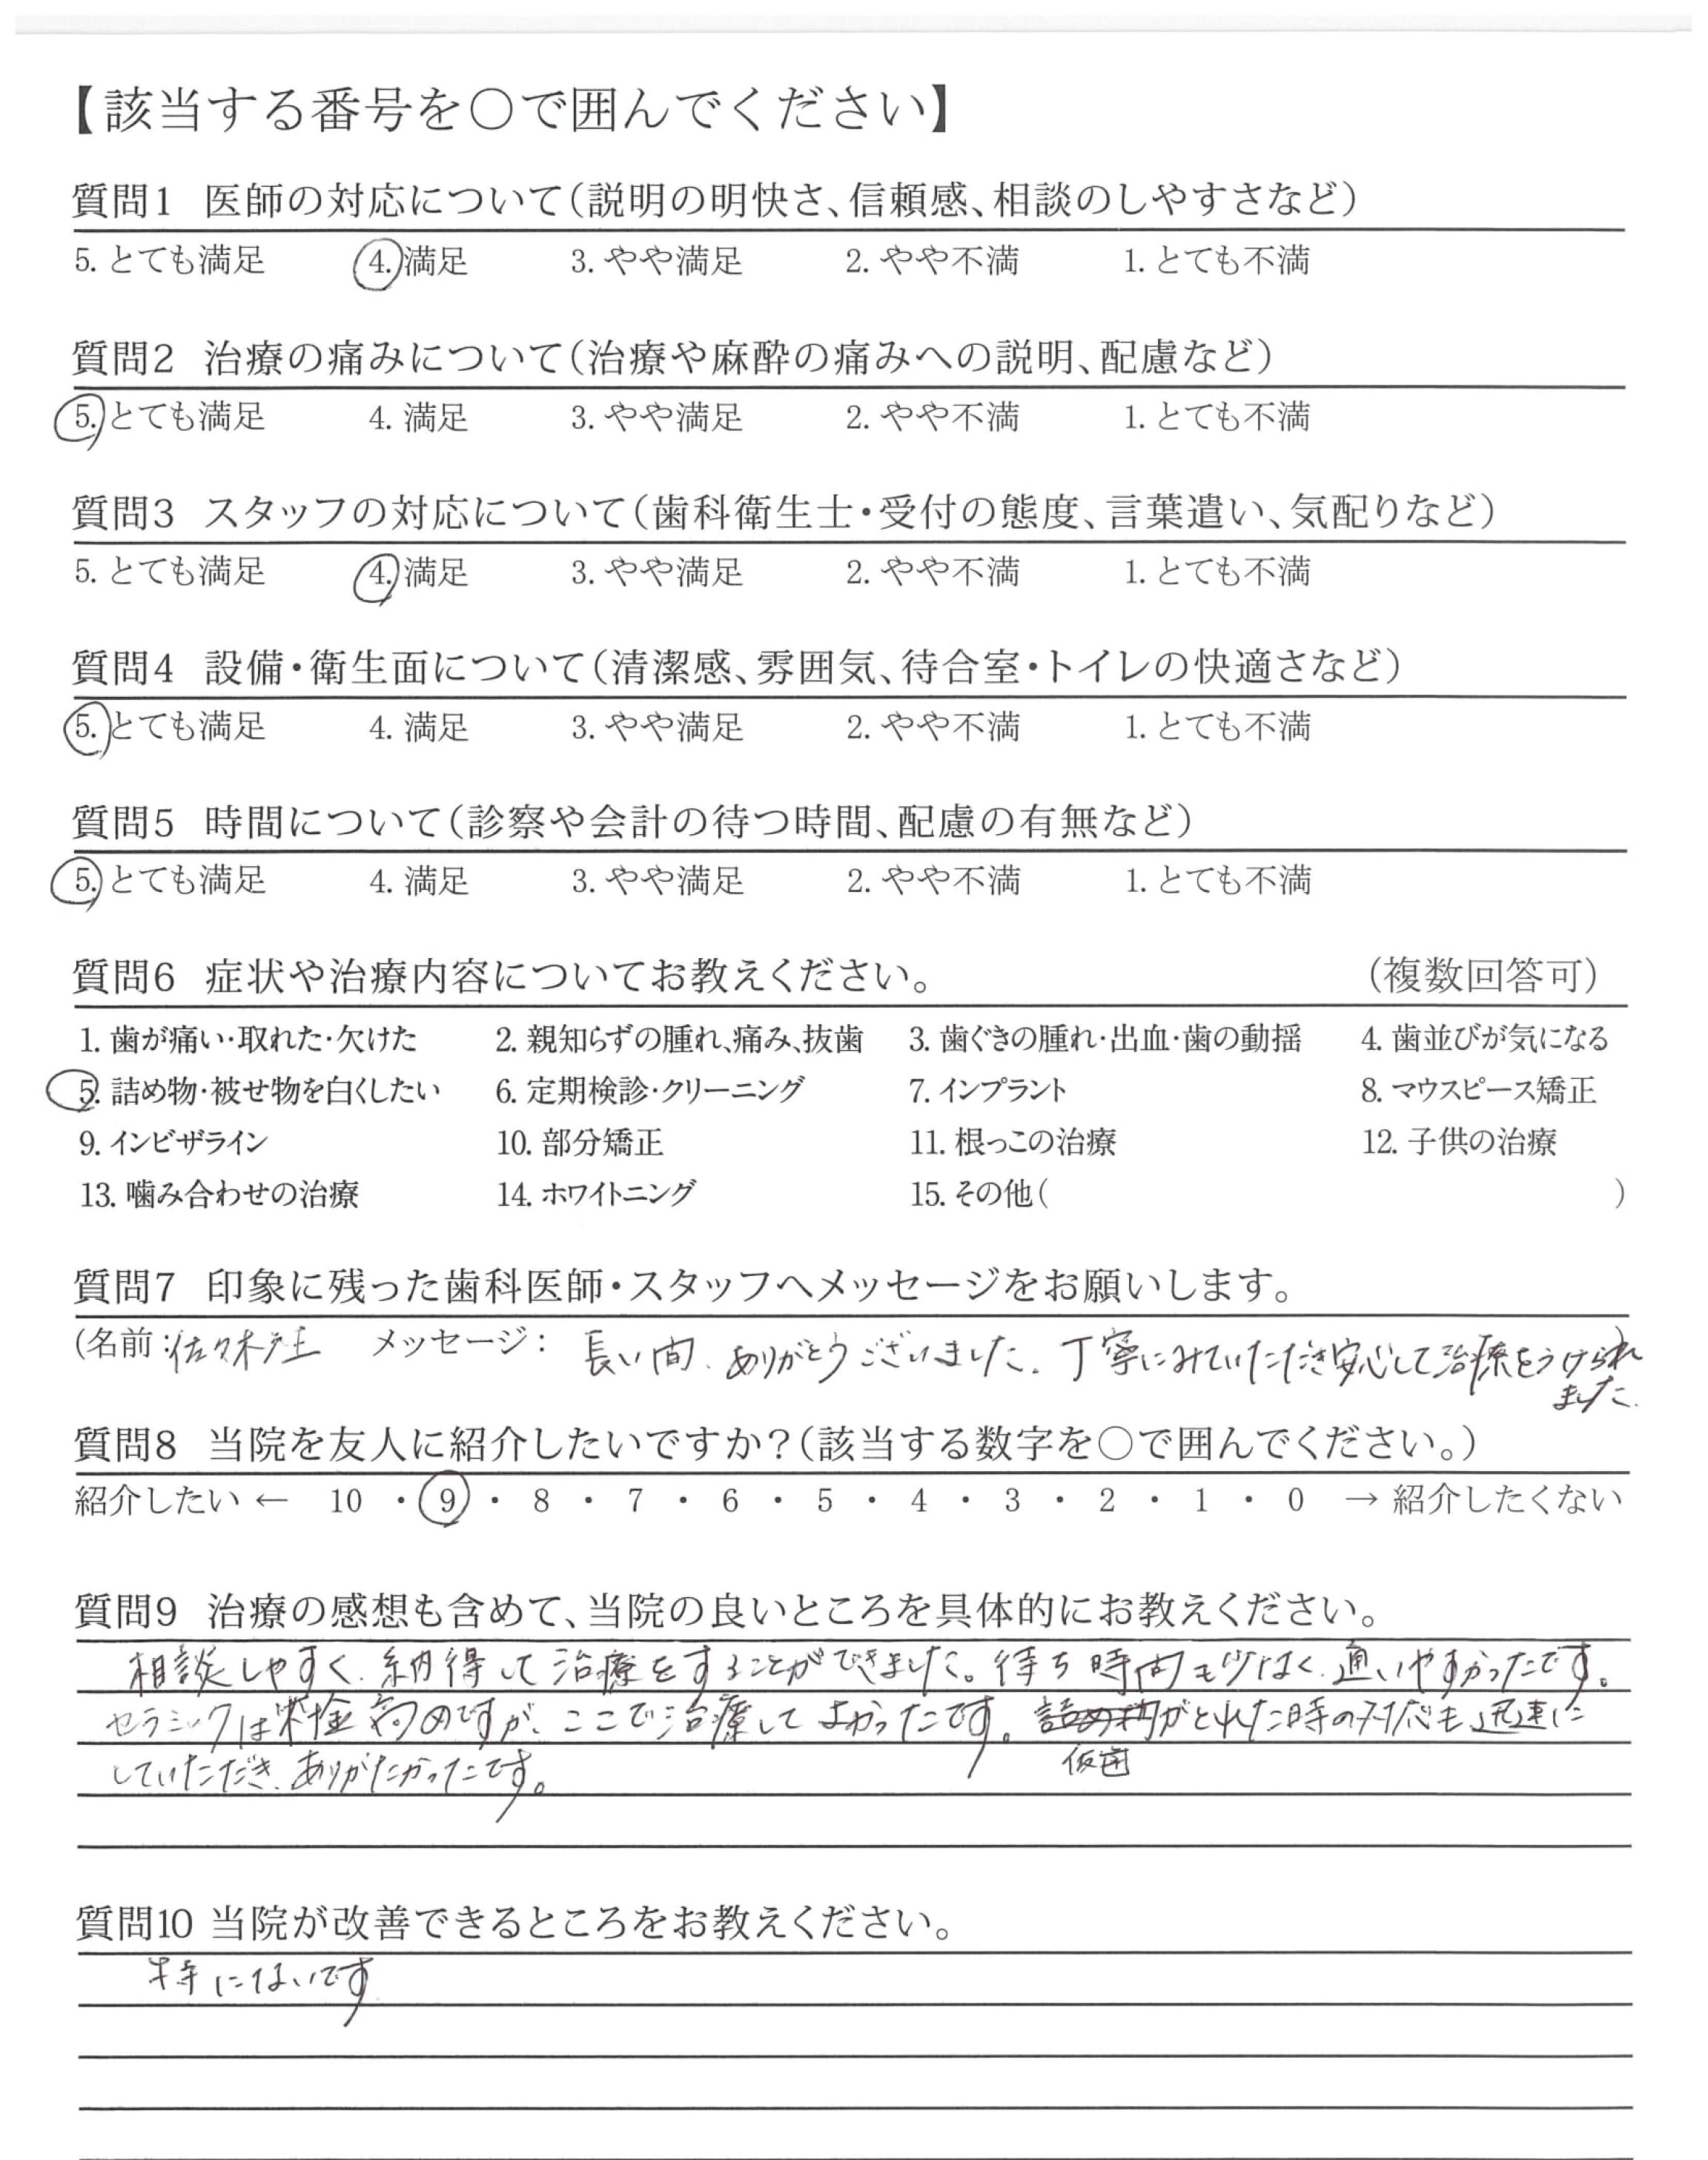 【該当する番号を〇で囲んでください】
質問1 医師の対応について(説明の明快さ、信頼感、相談のしやすさなど)
5. とても満足 4. 満足 3. やや満足 2. やや不満 1. とても不満
質問2 治療の痛みについて(治療や麻酔の痛みへの説明、配慮など)
5. とても満足 4. 満足 3. やや満足 2. やや不満 1. とても不満
質問3 スタッフの対応について(歯科衛生士・受付の態度、言葉遣い、気配りなど)
5. とても満足 4. 満足 3. やや満足 2. やや不満 1. とても不満
質問4 設備・衛生面について(清潔感、雰囲気、待合室・トイレの快適さなど)
5. とても満足 4. 満足 3. やや満足 2. やや不満 1. とても不満
質問5 時間について(診察や会計の待つ時間、配慮の有無など)
5. とても満足 4. 満足 3. やや満足 2. やや不満 1. とても不満
質問6 症状や治療内容についてお教えください。 (複数回答可)
1. 歯が痛い・取れた・欠けた 2. 親知らずの腫れ、痛み、抜歯 3. 歯ぐきの腫れ・出血・歯の動揺 4. 歯並びが気になる
5. 詰め物・被せ物を白くしたい 6. 定期検診・クリーニング 7. インプラント 8. マウスピース矯正
9. インビザライン 10. 部分矯正 11. 根っこの治療 12. 子供の治療
13. 噛み合わせの治療 14. ホワイトニング 15. その他( )
質問7 印象に残った歯科医師・スタッフへメッセージをお願いします。
(名前:佐々木先生 メッセージ: 長い間、ありがとうございました。丁寧にみていただき安心して治療をうけられ)
ました。
質問8 当院を友人に紹介したいですか?(該当する数字を〇で囲んでください。)
紹介したい ← 10 ・ 9 ・ 8 ・ 7 ・ 6 ・ 5 ・ 4 ・ 3 ・ 2 ・ 1 ・ 0 → 紹介したくない
質問9 治療の感想も含めて、当院の良いところを具体的にお教えください。
相談しやすく、納得して治療をすることができました。待ち時間も少なく、通いやすかったです。
セラミックは料金高めですが、ここで治療してよかったです。詰め物がとれた時の対応も迅速に
仮歯
していただき、ありがたかったです。
質問10 当院が改善できるところをお教えください。
特にないです